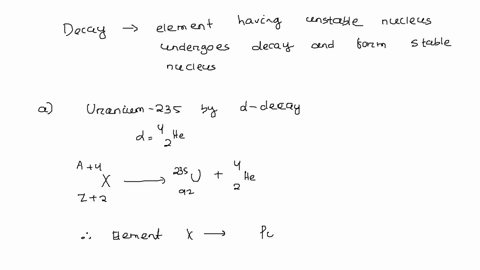 Decay → element having unstable nucleus
undergoes decay and form stable
nucleus
a) Uranium-235 by d-decay
d = ⁴₂He
ᴬ⁺⁴X ⟶ ²³⁵U + ⁴He
Z+2 92 2
∴ Element X ⟶ Pu